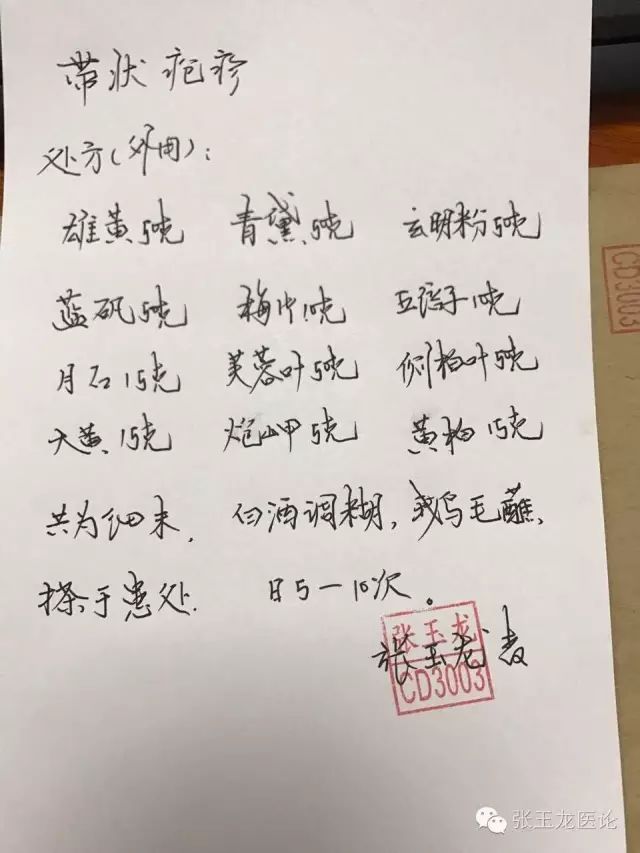 带状疱疹
处方(外用):
雄黄5克 青黛5克 玄明粉5克
蓝矾5克 梅片1克 五倍子10克
月石15克 芙蓉叶5克 侧柏叶5克
大黄15克 炮山甲5克 黄柏15克
共为细末, 白酒调糊, 鸡毛蘸,
搽于患处. 日5-10次。
张玉龙
CD3003
张玉龙
CD3003
张玉龙医论